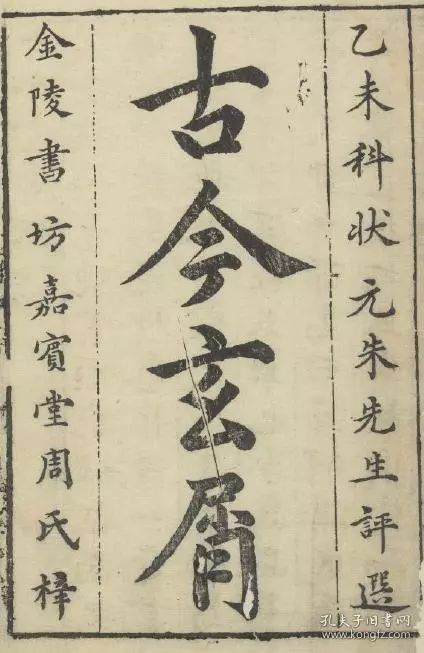 乙未科状元朱先生評選
古今玄屑
金陵書坊嘉賓堂周氏梓
孔夫子旧书网
www.kongfz.com